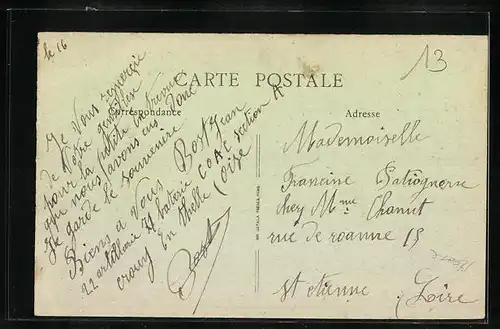 le 16
CARTE POSTALE
Correspondance
Adresse
13
Je Vous remercie
de Votre gentillesse
pour la petite entrevue
que nous avons eus donc
Je garde le souvenir
Biens a Vous Bost Jean
22 artillerie 21 batterie C.O.A.C section A
crouy En thelle (oise
Bost
Mademoiselle
Francine
chez Mme Chanut
rue de roanne 15
St etienne
Loire